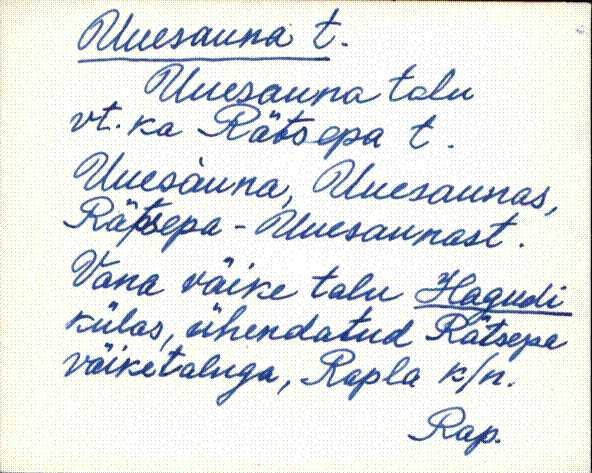 Uuesauna t.
Uuesauna talu
vt. ka Rätsepa t.
Uuesàuna, Uuesaunas,
Rätsepa - Uuesaunast.
Vana väike talu Hagudi
külas, ühendatud Rätsepa
väiketaluga, Rapla k/n.
Rap.